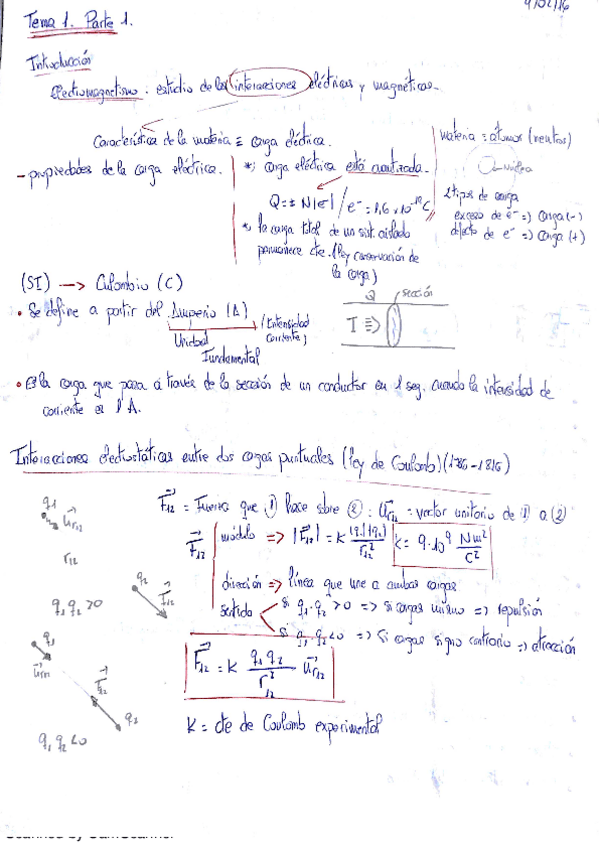 Tema 1. Parte 1.
Introducción
Electromagnetismo: estudio de las interacciones eléctricas y magnéticas.
Característica de la materia ≡ carga eléctrica.
materia = átomos (neutros)
- propiedades de la carga eléctrica.
* carga eléctrica está cuantizada.
Q = ± N|e⁻| / e⁻ = 1,6 x 10⁻¹⁹C
2 tipos de carga
exceso de e⁻ => carga (-)
defecto de e⁻ => carga (+)
* la carga total de un sist. aislado
permanece cte. (ley conservación de
la carga)
(SI) → Culombio (C)
• Se define a partir del Amperio (A)
Unidad
Fundamental
(Intensidad
corriente)
Q
sección
I =>
• Es la carga que pasa a través de la sección de un conductor en 1 seg. cuando la intensidad de
corriente es 1 A.
Interacciones electrostáticas entre dos cargas puntuales (ley de Coulomb) (1736-1806)
q₁
u⃗r₁₂
r₁₂
q₂
F⃗₁₂
q₁ q₂ > 0
F⃗₁₂ = Fuerza que ① hace sobre ② : u⃗r₁₂ = vector unitario de ① a ②
F⃗₁₂
módulo => |F⃗₁₂| = K |q₁||q₂| / r²₁₂
K = 9·10⁹ Nm²/C²
dirección => línea que une a ambas cargas
sentido
si q₁·q₂ > 0 => si cargas mismo => repulsión
si q₁·q₂ < 0 => si cargas signo contrario => atracción
q₁
u⃗r₁₂
F⃗₁₂
q₂
q₁ q₂ < 0
F⃗₁₂ = K q₁ q₂ / r²₁₂ u⃗r₁₂
K = cte de Coulomb experimental